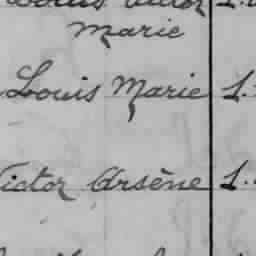 Marie
Louis Marie 1.
Victor Arsène 1.